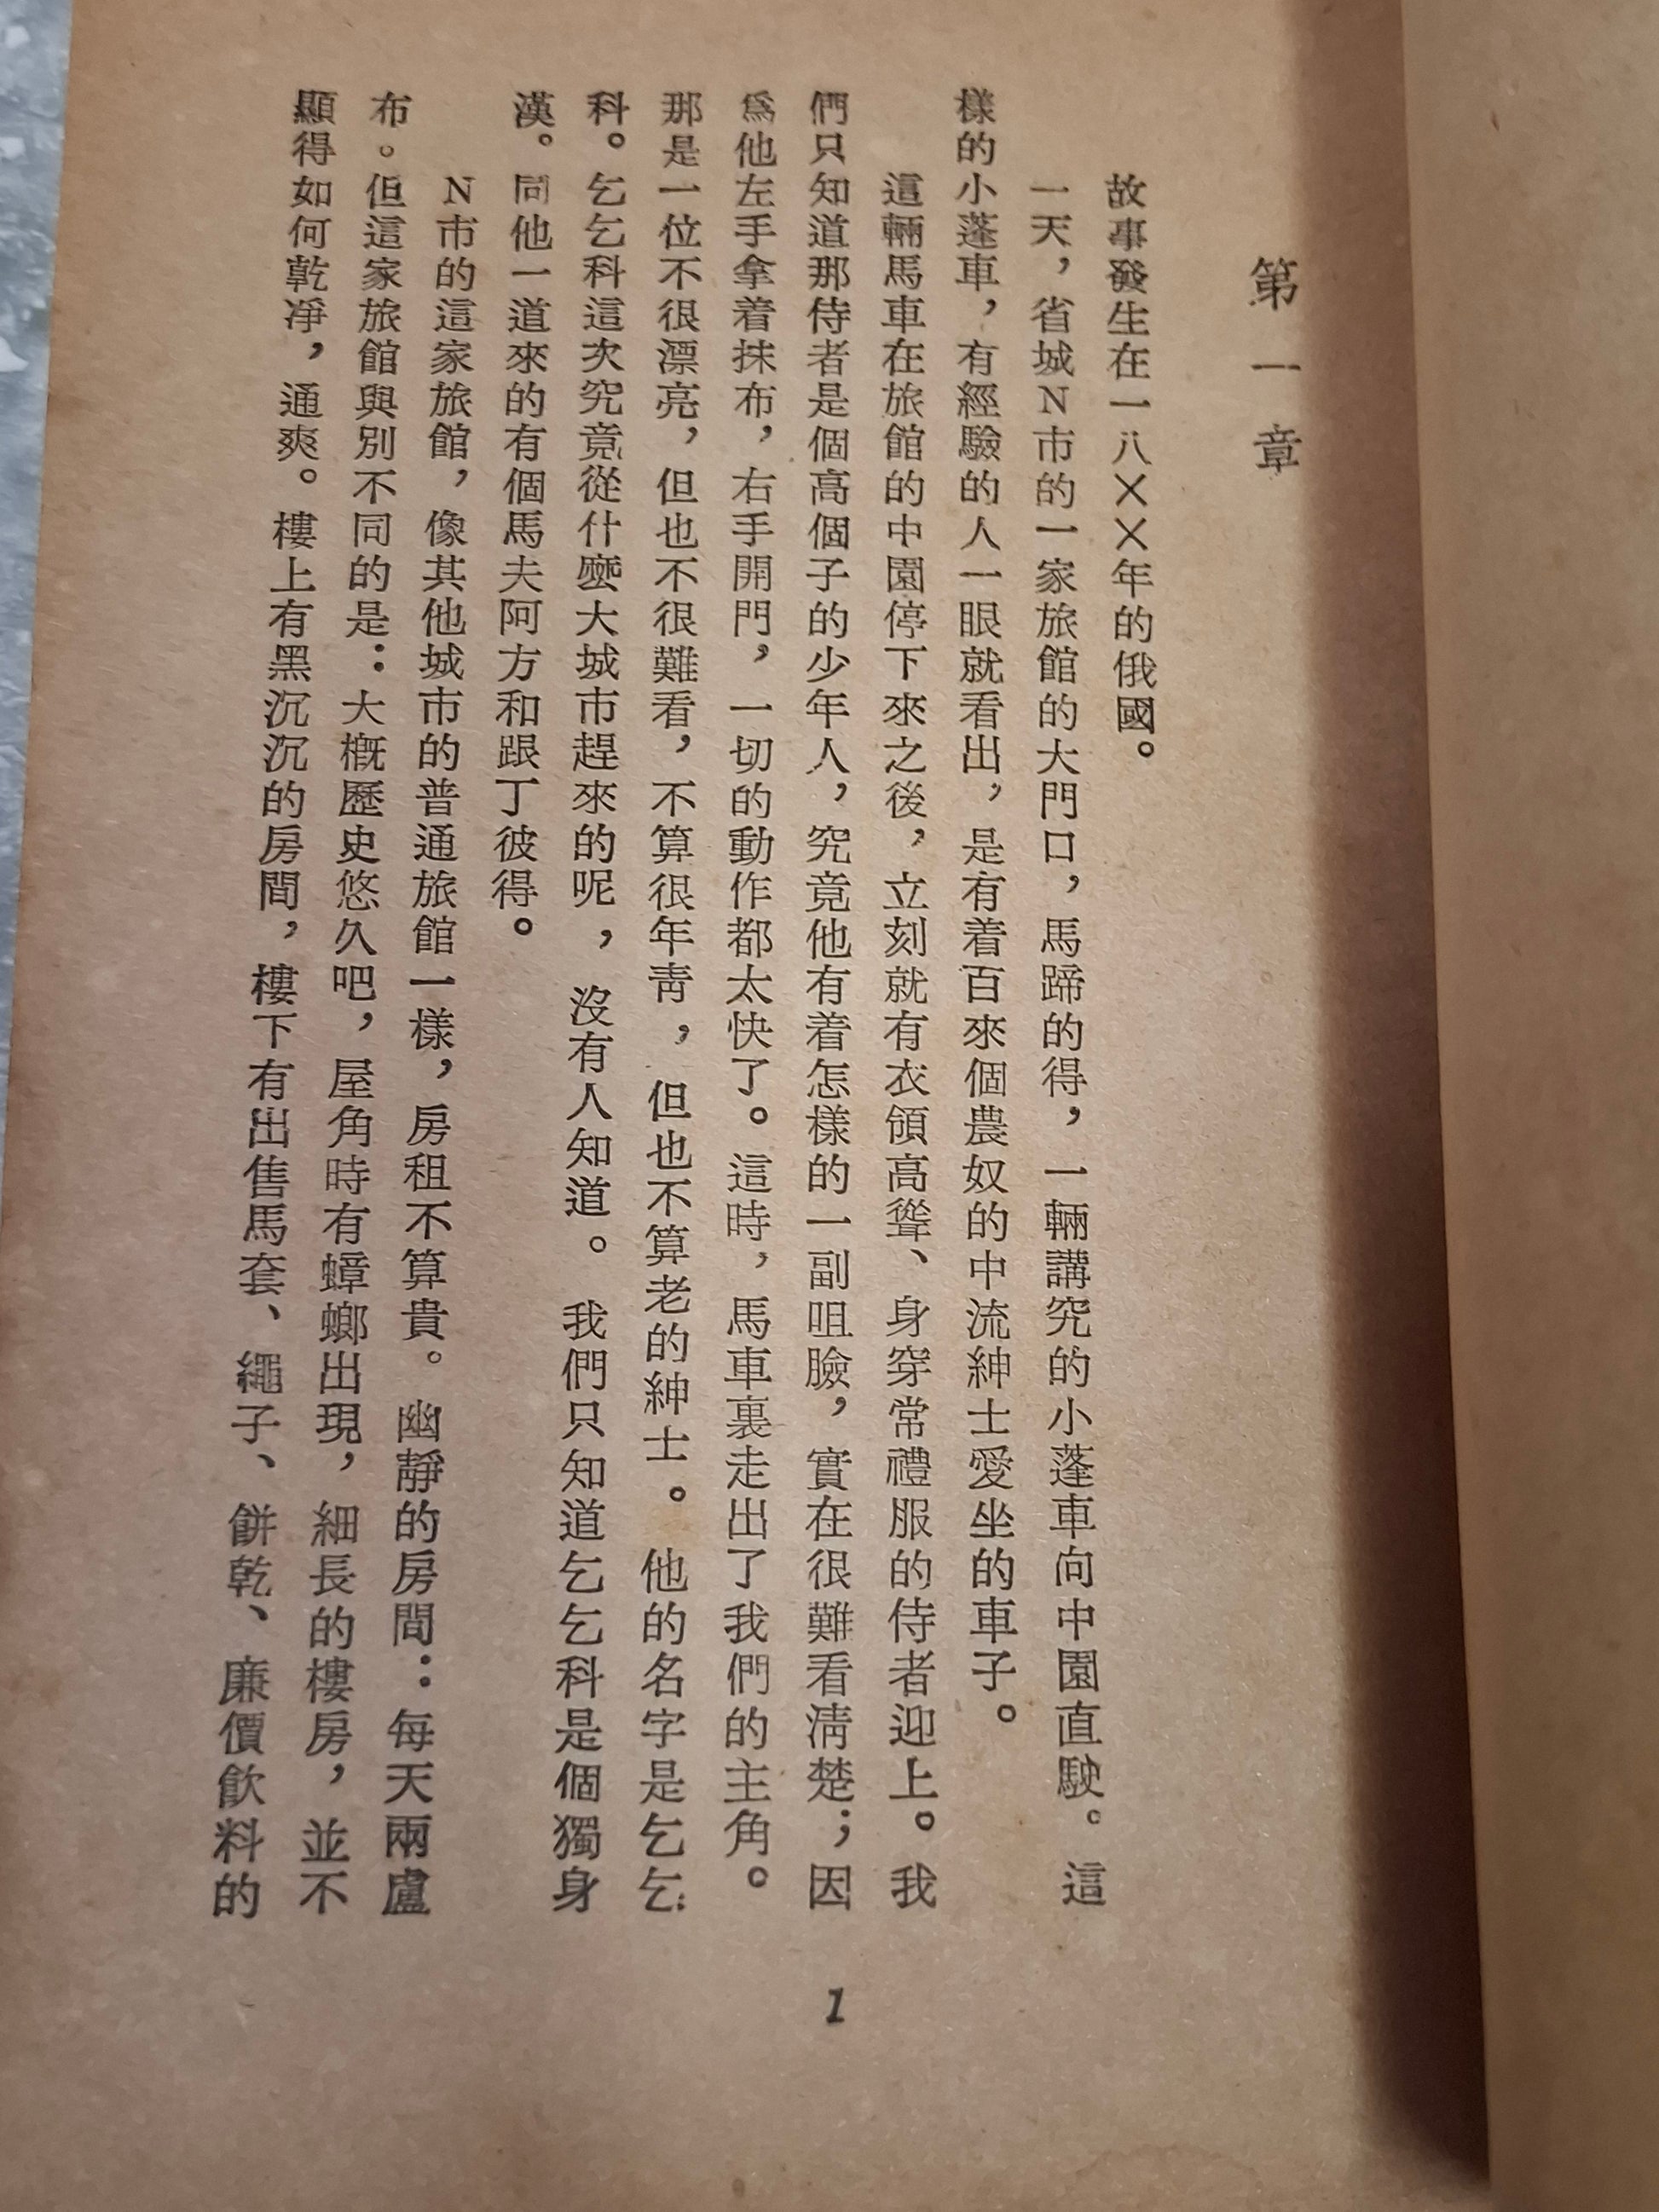 第一章
故事發生在一八××年的俄國。
一天，省城N市的一家旅館的大門口，馬蹄的得，一輛講究的小蓬車向中園直駛。這
樣的小蓬車，有經驗的人一眼就看出，是有着百來個農奴的中流紳士愛坐的車子。
這輛馬車在旅館的中園停下來之後，立刻就有衣領高聳、身穿常禮服的侍者迎上。我
們只知道那侍者是個高個子的少年人，究竟他有着怎樣的一副咀臉，實在很難看淸楚；因
爲他左手拿着抹布，右手開門，一切的動作都太快了。這時，馬車裏走出了我們的主角。
那是一位不很漂亮，但也不很難看，不算很年靑，但也不算老的紳士。他的名字是乞乞
科。乞乞科這次究竟從什麼大城市趕來的呢，沒有人知道。我們只知道乞乞科是個獨身
漢。同他一道來的有個馬夫阿方和跟丁彼得。
N市的這家旅館，像其他城市的普通旅館一樣，房租不算貴。幽靜的房間：每天兩盧
布。但這家旅館與別不同的是：大槪歷史悠久吧，屋角時有蟑螂出現，細長的樓房，並不
顯得如何乾凈，通爽。樓上有黑沉沉的房間，樓下有出售馬套、繩子、餅乾、廉價飮料的
1